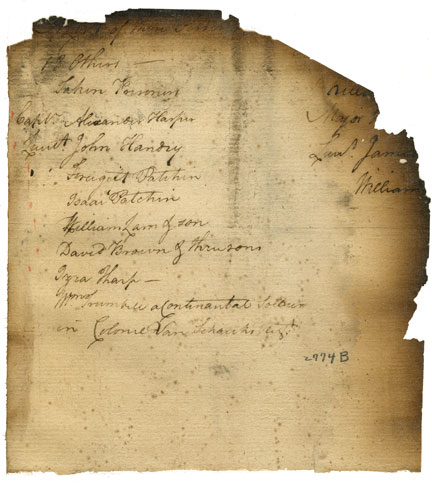 of
Others —
Taken Prisoners
Capt Alexander Harper
Lieut John Handry
Freegift Patchin
Isaac Patchin
William Lam & son
David Brown & thru sons
Ezra Tharp —
Wm Trumbull a Continantal Soldier
in Colonel Van Schaicks Regt
Major
Lieut James
William
2974 B